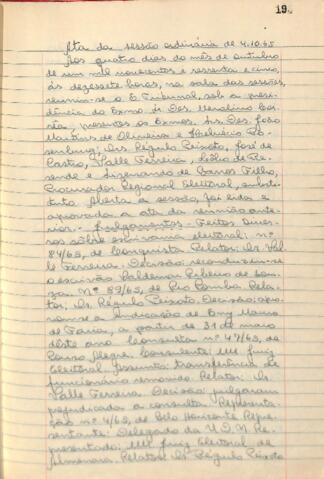 19.
Ata da sessão ordinária de 4.10.65
Aos quatro dias do mês de outubro
de um mil novecentos e sessenta e cinco,
às dezessete horas, na sala das sessões,
reuniu-se o E. Tribunal, sob a presi-
dência do Exmo. Sr. Des. Merolino Cor-
rêa, presentes os Exmos. Srs. Des. João
Martins de Oliveira e Helvécio Ro-
senburg; Drs. Régulo Peixoto, José de
Castro, Valle Ferreira, de Re-
sende e de Barros Filho,
Procurador Regional Eleitoral, substi-
tuto. Aberta a sessão, foi lida e
aprovada a ata da reunião ante-
rior. Julgamentos - Feitos diver-
sos sôbre escrivania eleitoral: nº
84/65, de Conquista. Relator: Dr. Val-
le Ferreira. Decisão: reconduziu-se
o escrivão Valdemar Ribeiro de Sou-
za. Nº 89/65, de Rio Pomba. Rela-
tor, Dr. Régulo Peixoto. Decisão: apro-
vou-se a indicação de Eny Maria
de Faria, a partir de 31 de maio
dêste ano. Consulta nº 47/65, de
Pouso Alegre. Consulente: MM. Juiz
Eleitoral. Assunto: transferência de
funcionário removido. Relator: Dr.
Valle Ferreira. Decisão: julgaram
prejudicada a consulta. Representa-
ção nº 4/65, de Belo Horizonte. Repre-
sentante: Delegado da U.D.N. Re-
presentado: MM. Juiz Eleitoral de
Almenara. Relator: Dr. Régulo Peixoto